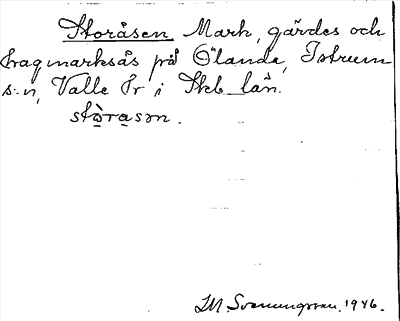 Storåsen Mark, gärdes och
hagmarksås på Ölanda, Istrum
s:n, Valle Hr i Skb län.
stòrasən.
I.M. Svenungsson. 1946.